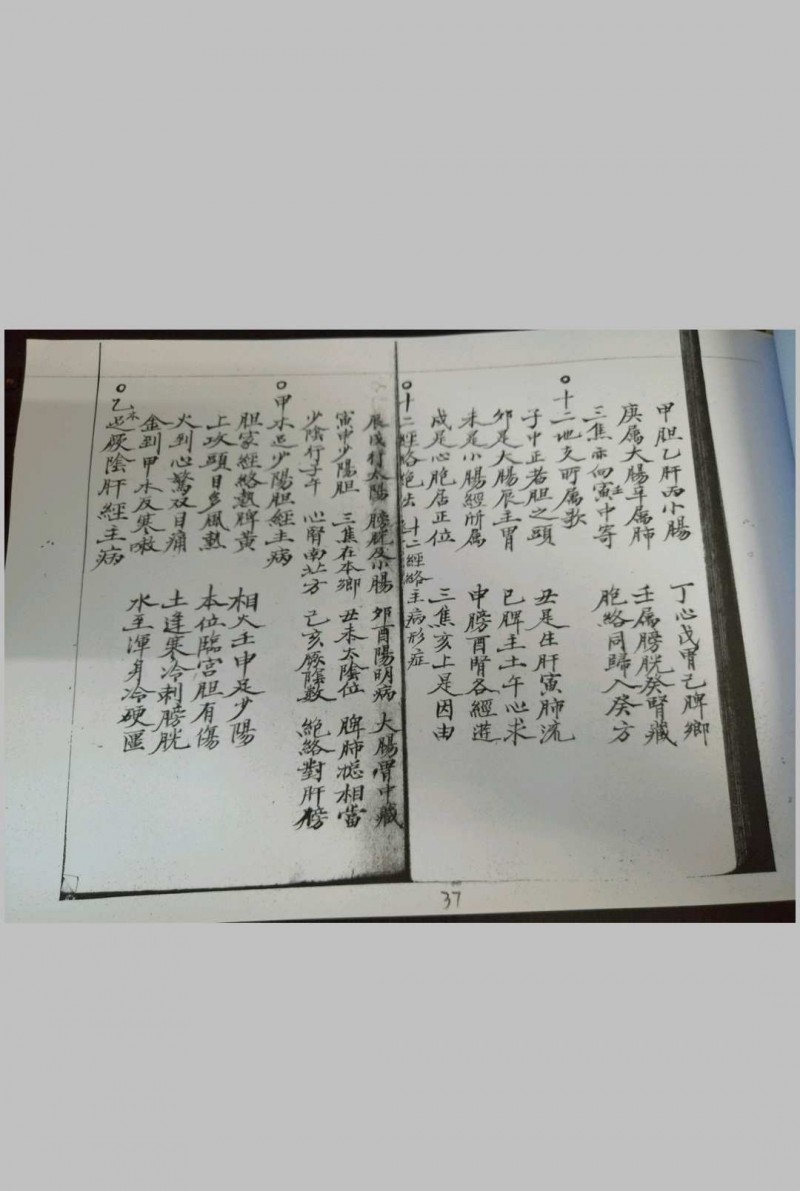 甲胆乙肝丙小腸 丁心戊胃己脾鄉
庚属大腸辛属肺 壬属膀胱癸腎藏
三焦亦向寅中寄 胞絡同歸入癸方
○十二地支所属歌
子中正若胆之頭 丑是生肝寅肺流
卯是大腸辰主胃 巳脾主土午心求
未是小腸經所属 申膀酉腎各經進
戌是心胞居正位 三焦亥上是因由
○十二經絡 十二經絡主病形症
辰戌行太陽 膀胱及小腸 卯酉陽明病 大腸胃中藏
寅申少陽胆 三焦在本鄉 丑未太陰位 脾肺總相當
少陰行子午 心腎南北方 己亥厥陰数 絕絡對肝榜
○甲木迟少陽胆經主病
胆家經絡熱脾黄 相火壬申是少陽
上攻頭目多風熱 本位臨宫胆有傷
火到心驚双目痛 土逢寒冷刺膀胱
金到甲木反寒嗽 水至渾身冷硬匨
○乙木迟厥陰肝經主病
37